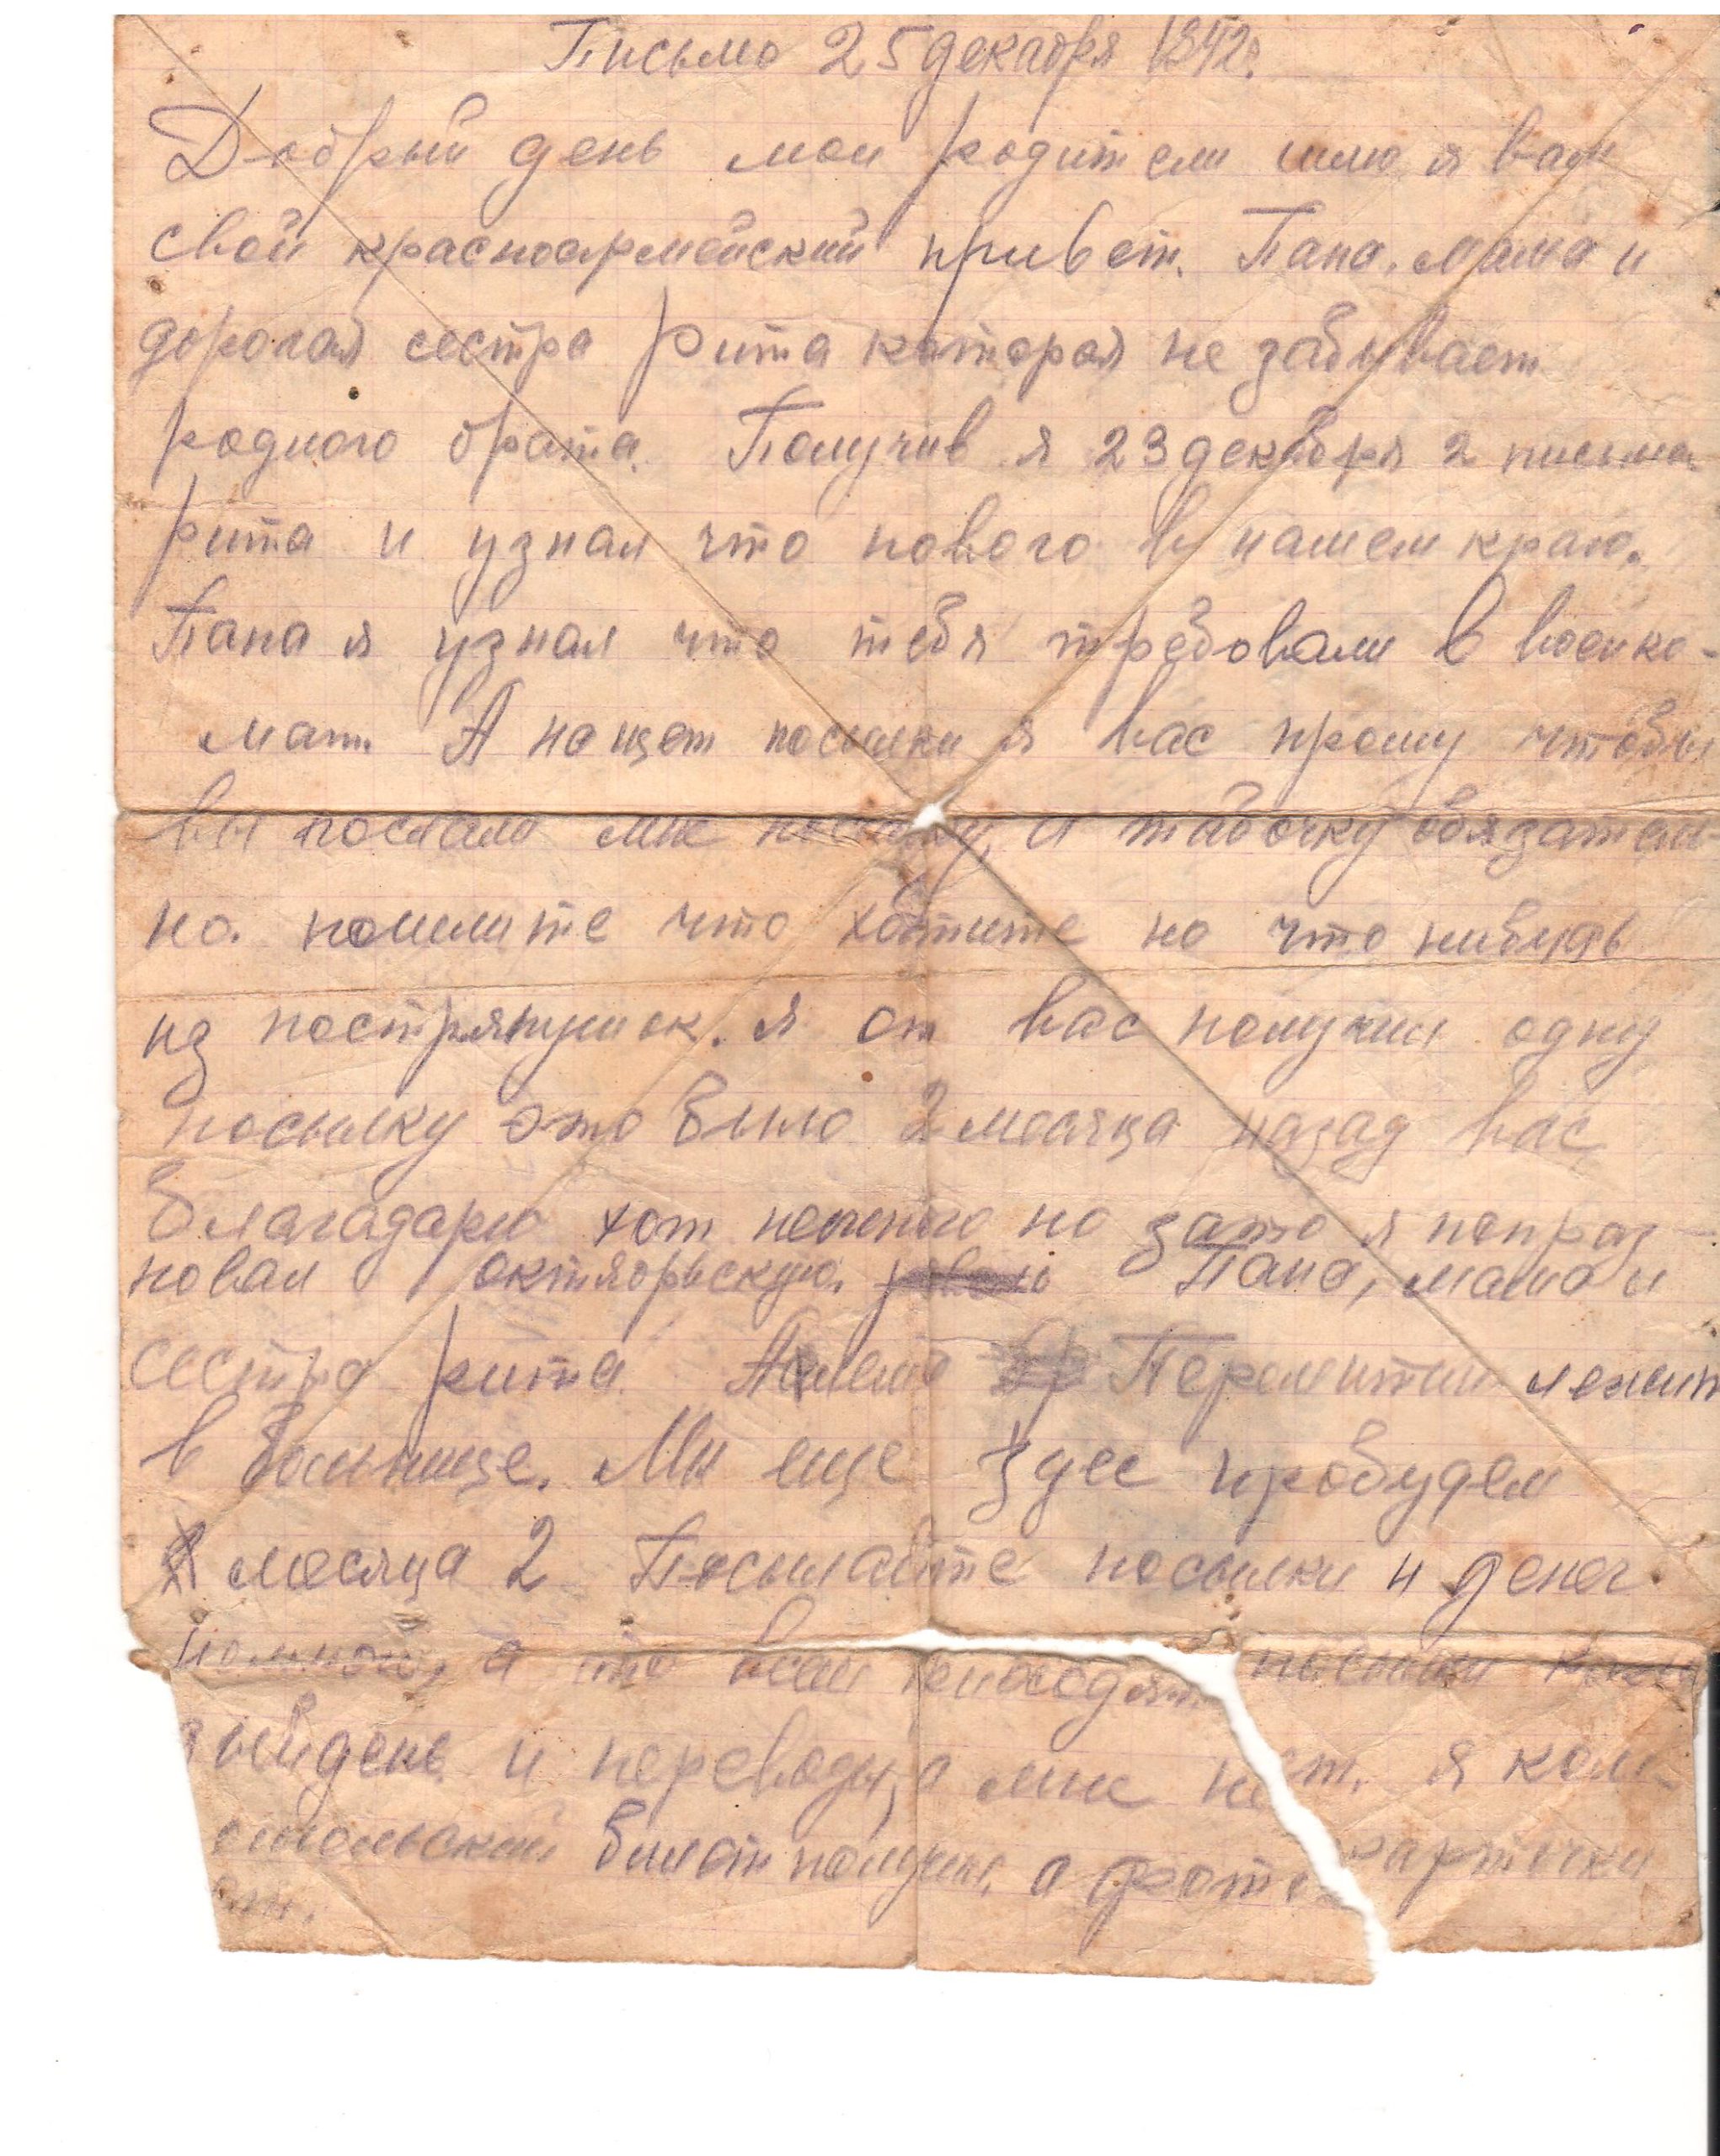 Письмо 25 декабря 1942г.
Добрый день мои родители шлю я вам
свой красноармейский привет. Папа, мама и
дорогая сестра Рита которая не забывает
родного брата. Получив я 23 декабря 2 письма
Рита и узнал что нового в нашем краю.
Папа я узнал что тебя требовали в военко-
мат. А нащет посылки я вас прошу чтобы
вы послали мне посылку, и табочку обязатель
но. пошлите что хотите но что нибудь
из постряпушок. Я от вас получил одну
посылку это было 2 месяца назад вас
благадарю хот немного но зато я попраз-
новал октябрьскую. Папа, мама и
сестра рита. Перемитин лежит
в больнице. Мы еще здес пробудем
месяца 2 Посылайте посылки и денег
немного, а то всем приходят посылки каж
дый день и переводы, а мне нет. я ком-
сомольский билет получил, а фото карточки
нет.